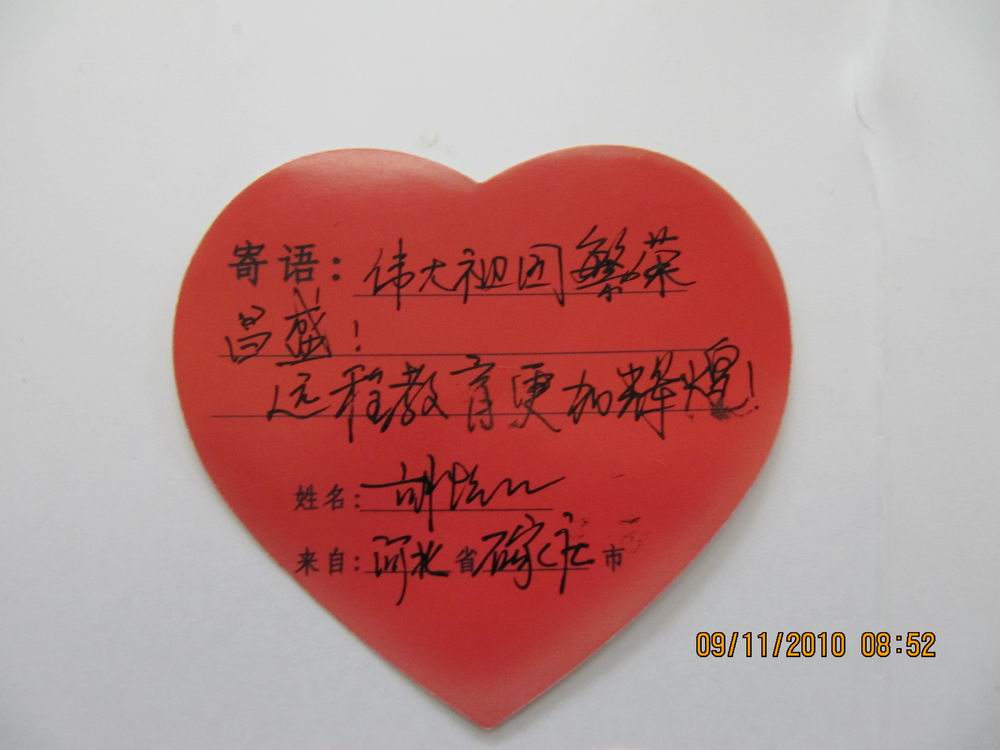 寄语：伟大祖国繁荣
昌盛！
远程教育更加辉煌！
姓名：
来自：河北省石家庄市
09/11/2010 08:52